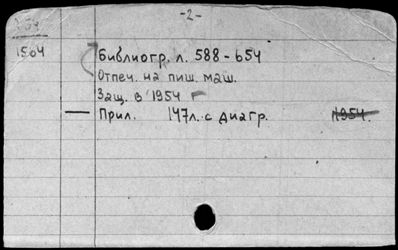 -2-
1564
Библиогр. л. 588-654
Отпеч. на пиш. маш.
Защ. в 1954 г
— Прил. 147л. с диагр. 1954.